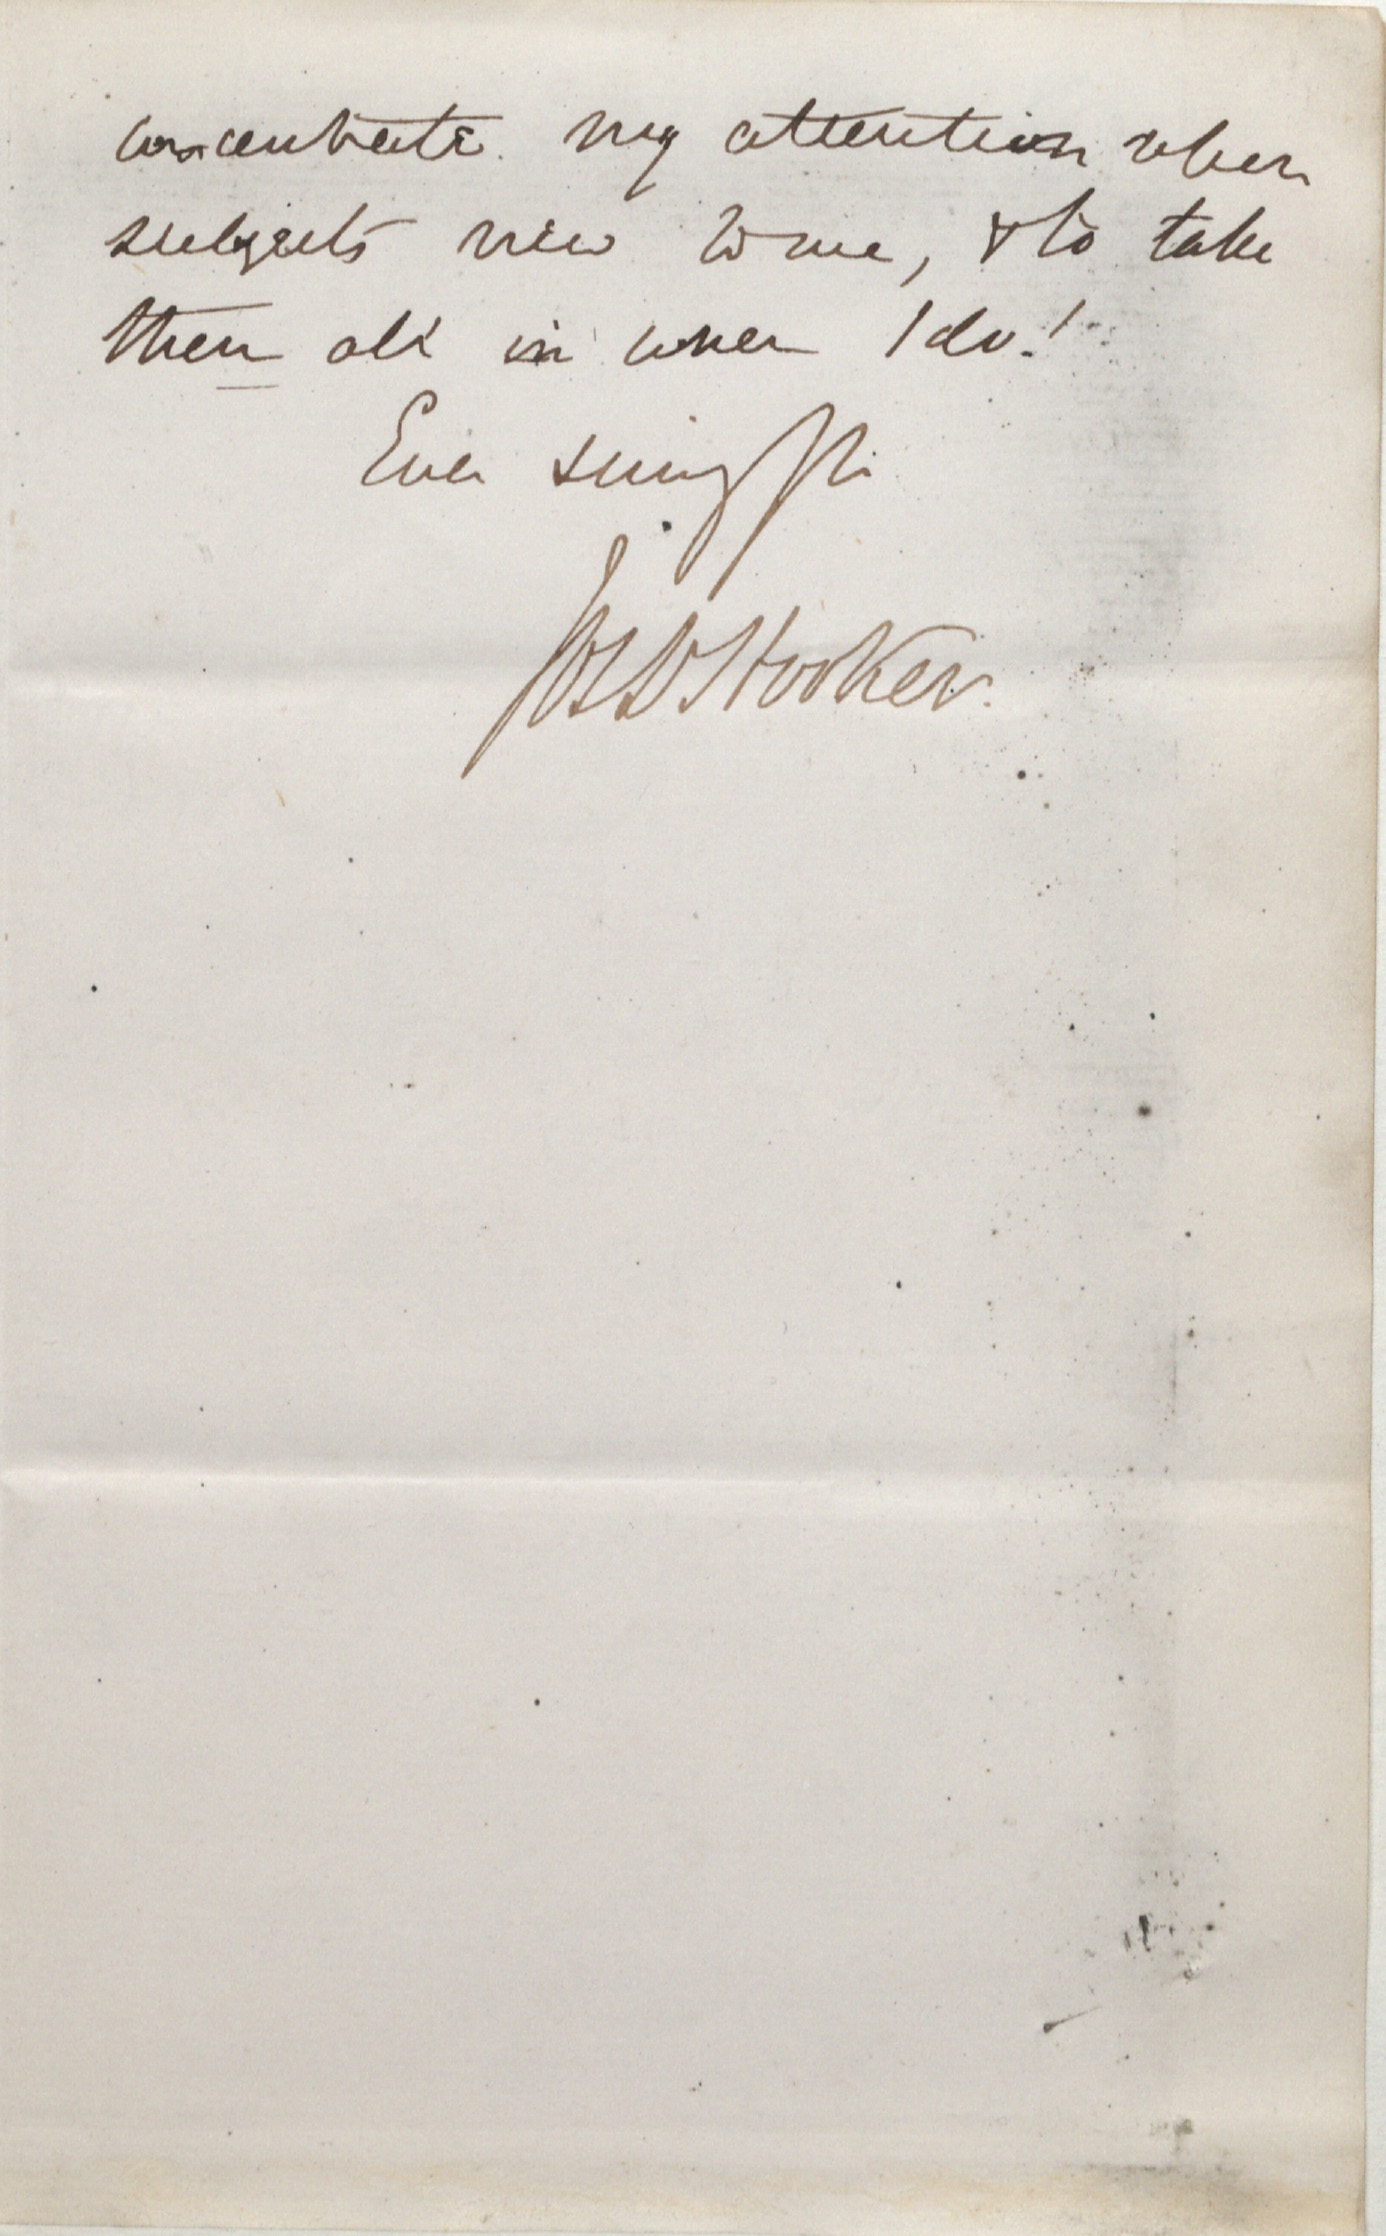 concentrate my attention when
subjects new to me, & to take
them all in when I do!
Ever sincly Yrs
Jos D Hooker.